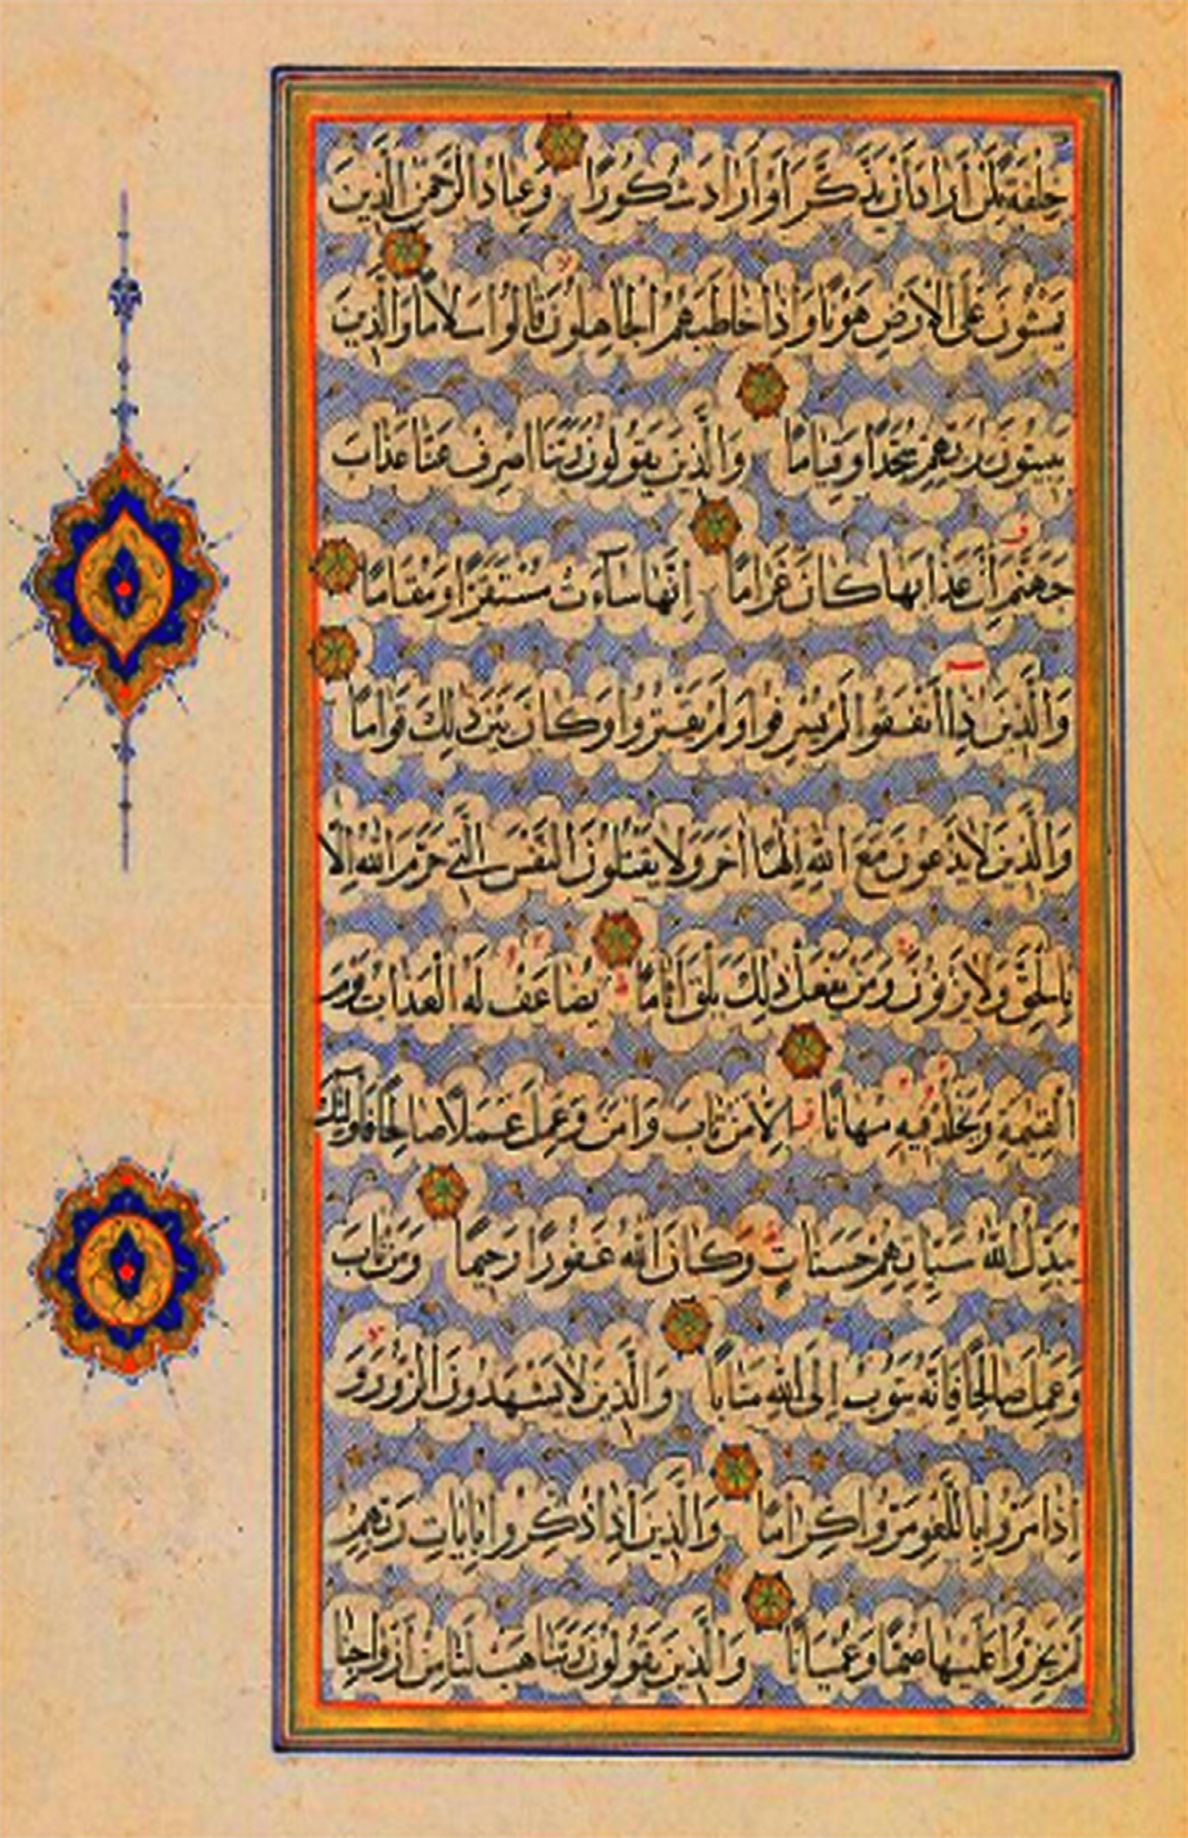 خِلْفَةً لِمَنْ أَرَادَ أَنْ يَذَّكَّرَ أَوْ أَرَادَ شُكُورًا وَعِبَادُ الرَّحْمٰنِ الَّذِينَ
يَمْشُونَ عَلَى الْأَرْضِ هَوْنًا وَإِذَا خَاطَبَهُمُ الْجَاهِلُونَ قَالُوا سَلَامًا وَالَّذِينَ
يَبِيتُونَ لِرَبِّهِمْ سُجَّدًا وَقِيَامًا وَالَّذِينَ يَقُولُونَ رَبَّنَا اصْرِفْ عَنَّا عَذَابَ
جَهَنَّمَ إِنَّ عَذَابَهَا كَانَ غَرَامًا إِنَّهَا سَآءَتْ مُسْتَقَرًّا وَمُقَامًا
وَالَّذِينَ إِذَا أَنْفَقُوا لَمْ يُسْرِفُوا وَلَمْ يَقْتُرُوا وَكَانَ بَيْنَ ذٰلِكَ قَوَامًا
وَالَّذِينَ لَا يَدْعُونَ مَعَ اللّٰهِ إِلٰهًا آخَرَ وَلَا يَقْتُلُونَ النَّفْسَ الَّتِي حَرَّمَ اللّٰهُ إِلَّا
بِالْحَقِّ وَلَا يَزْنُونَ وَمَنْ يَفْعَلْ ذٰلِكَ يَلْقَ أَثَامًا يُضَاعَفْ لَهُ الْعَذَابُ يَوْمَ
الْقِيٰمَةِ وَيَخْلُدْ فِيهِ مُهَانًا إِلَّا مَنْ تَابَ وَآمَنَ وَعَمِلَ عَمَلًا صَالِحًا فَأُولٰئِكَ
يُبَدِّلُ اللّٰهُ سَيِّئَاتِهِمْ حَسَنَاتٍ وَكَانَ اللّٰهُ غَفُورًا رَحِيمًا وَمَنْ تَابَ
وَعَمِلَ صَالِحًا فَإِنَّهُ يَتُوبُ إِلَى اللّٰهِ مَتَابًا وَالَّذِينَ لَا يَشْهَدُونَ الزُّورَ وَ
إِذَا مَرُّوا بِاللَّغْوِ مَرُّوا كِرَامًا وَالَّذِينَ إِذَا ذُكِّرُوا بِآيَاتِ رَبِّهِمْ
لَمْ يَخِرُّوا عَلَيْهَا صُمًّا وَعُمْيَانًا وَالَّذِينَ يَقُولُونَ رَبَّنَا هَبْ لَنَا مِنْ أَزْوَاجِنَا